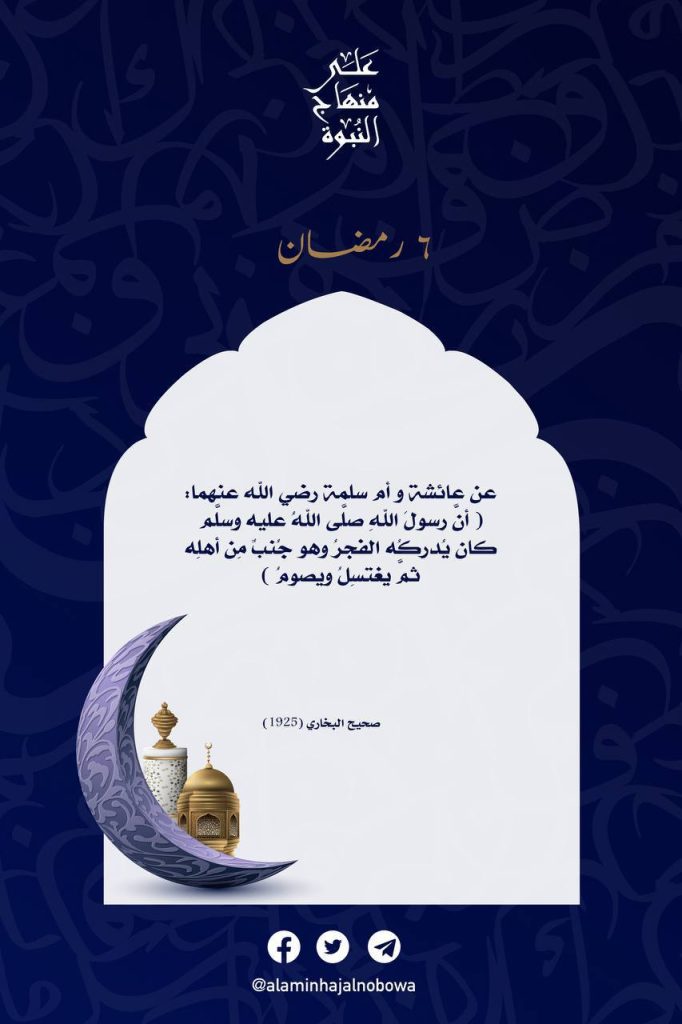 عَلَى
مِنهَاجِ
النُّبُوة
٦ رمضان
عن عائشة و أم سلمة رضي الله عنهما:
( أنَّ رسولَ اللهِ صلَّى اللهُ عليه وسلَّم
كان يُدركُه الفجرُ وهو جُنبٌ مِن أهلِه
ثمَّ يغتسِلُ ويصومُ )
صحيح البخاري (1925)
@alaminhajalnobowa